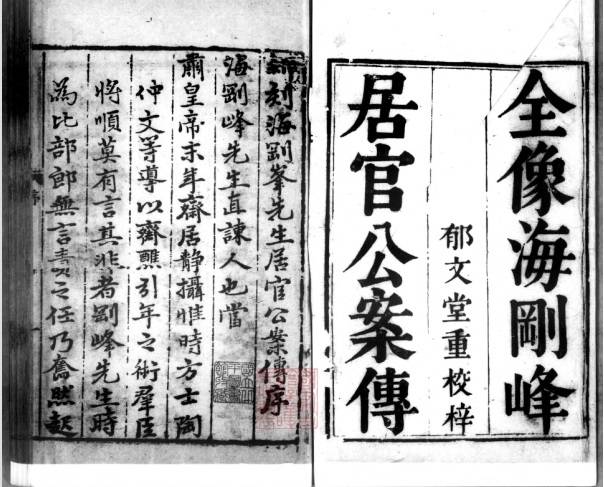 全像海剛峰
郁文堂重校梓
居官公案傳
新刻海剛峯先生居官公案傳序
海剛峰先生直諫人也當
肅皇帝末年齋居靜攝惟時方士陶
仲文等導以齋醮引年之術羣臣
將順莫有言其非者剛峰先生時
為比部郎無言責之任乃奮然起
序